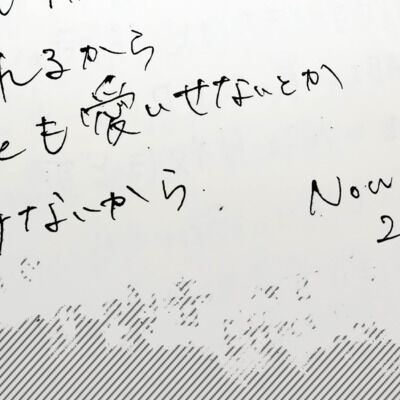 れるから
も愛いせないとか
ないから
Now
2